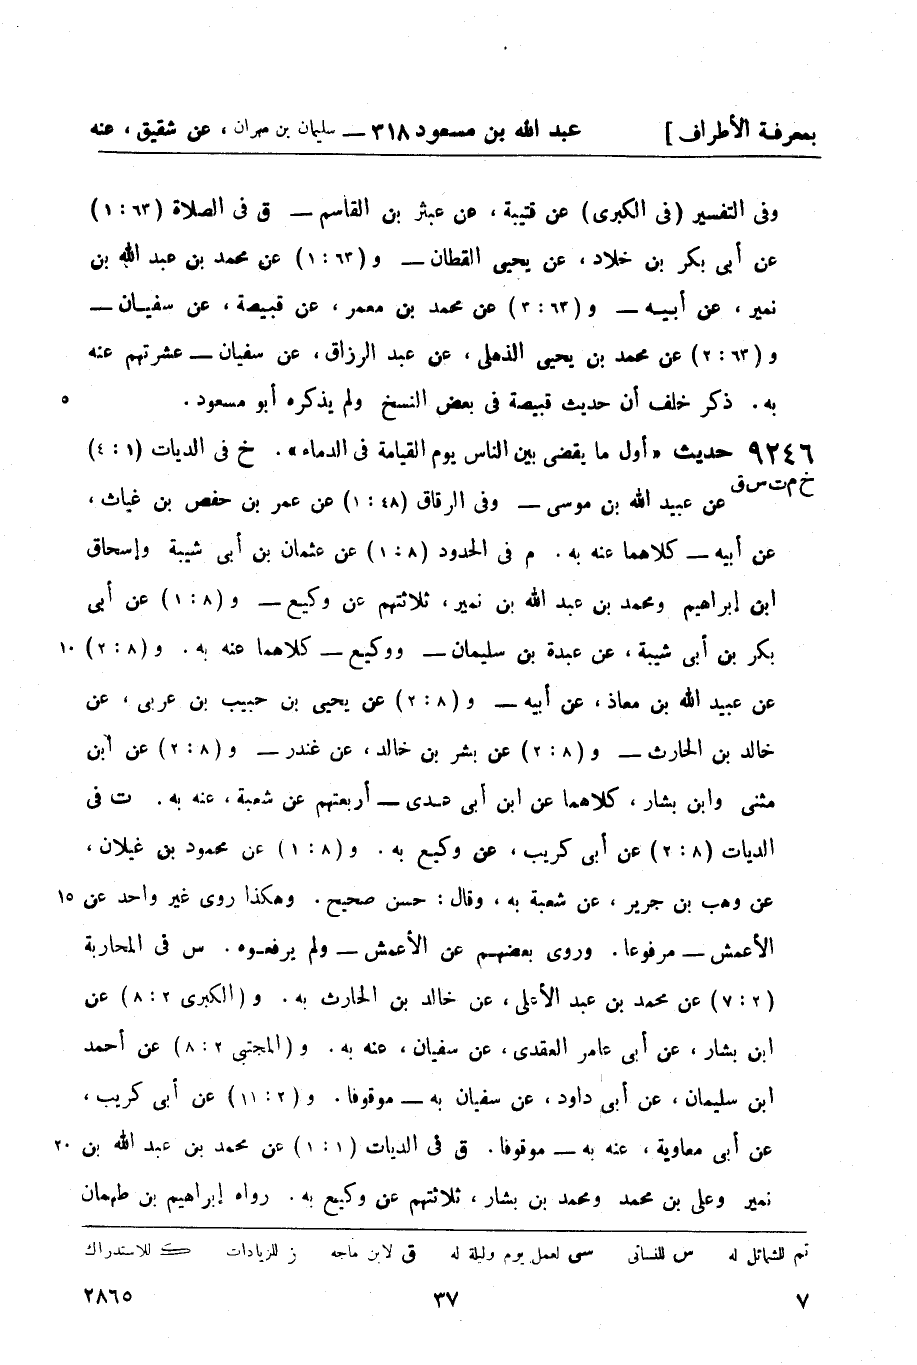 بمعرفة الأطراف ] عبد الله بن مسعود ٣١٨ — سليمان بن مهران ، عن شقيق ، عنه
وفى التفسير (فى الكبرى) عن قتيبة ، عن عبثر بن القاسم — ق فى الصلاة (٦٣ : ١)
عن أبى بكر بن خلاد ، عن يحيى القطان — و (٦٣ : ١) عن محمد بن عبد الله بن
نمير ، عن أبيـه — و (٦٣ : ٣) عن محمد بن معمر ، عن قبيصة ، عن سفيـان —
و (٦٣ : ٢) عن محمد بن يحيى الذهلى ، عن عبد الرزاق ، عن سفيان — عشرتهم عنه
به . ذكر خلف أن حديث قبيصة فى بعض النسخ ولم يذكره أبو مسعود . ٥
٩٢٤٦ حديث « أول ما يقضى بين الناس يوم القيامة فى الدماء » . خ فى الديات (١ : ٤)
خ م ت س ق عن عبيد الله بن موسى — وفى الرقاق (٤٨ : ١) عن عمر بن حفص بن غياث ،
عن أبيه — كلاهما عنه به . م فى الحدود (٨ : ١) عن عثمان بن أبى شيبة وإسحاق
ابن إبراهيم ومحمد بن عبد الله بن نمير ، ثلاثتهم عن وكيع — و (٨ : ١) عن أبى
بكر بن أبى شيبة ، عن عبدة بن سليمان — ووكيع — كلاهما عنه به . و (٨ : ٢) ١٠
عن عبيد الله بن معاذ ، عن أبيه — و (٨ : ٢) عن يحيى بن حبيب بن عربى ، عن
خالد بن الحارث — و (٨ : ٢) عن بشر بن خالد ، عن غندر — و (٨ : ٢) عن ابن
مثنى وابن بشار ، كلاهما عن ابن أبى عـدى — أربعتهم عن شعبة ، عنه به . ت فى
الديات (٨ : ٢) عن أبى كريب ، عن وكيع به . و (٨ : ١) عن محمود بن غيلان ،
عن وهب بن جرير ، عن شعبة به ، وقال : حسن صحيح . وهكذا روى غير واحد عن ١٥
الأعمش — مرفوعا . وروى بعضهـم عن الأعمش — ولم يرفعـوه . س فى المحاربة
(٢ : ٧) عن محمد بن عبد الأعلى ، عن خالد بن الحارث به . و (الكبرى ٢ : ٨) عن
ابن بشار ، عن أبى عامر العقدى ، عن سفيان ، عنه به . و (المجتبى ٢ : ٨) عن أحمد
ابن سليمان ، عن أبى داود ، عن سفيان به — موقوفا . و (٢ : ١١) عن أبى كريب ،
عن أبى معاوية ، عنه به — موقوفا . ق فى الديات (١ : ١) عن محمد بن عبد الله بن ٢٠
نمير وعلى بن محمد ومحمد بن بشار ، ثلاثتهم عن وكيع به . رواه إبراهيم بن طهمان
تم للشمائل له س للنسائى سى لعمل يوم وليلة له ق لابن ماجه ز للزيادات ك للاستدراك
٧ ٣٧ ٢٨٦٥